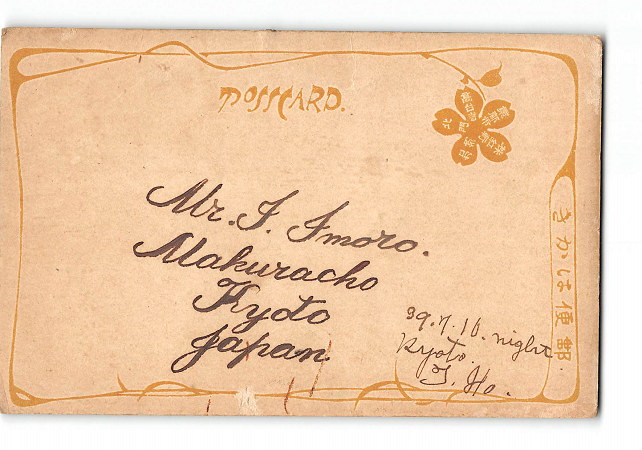 POSTCARD.
Mr. I. Imoro.
Makuracho
Kyoto
Japan
39.7.16. night.
Kyoto.
T. Ho.
きかは便郵